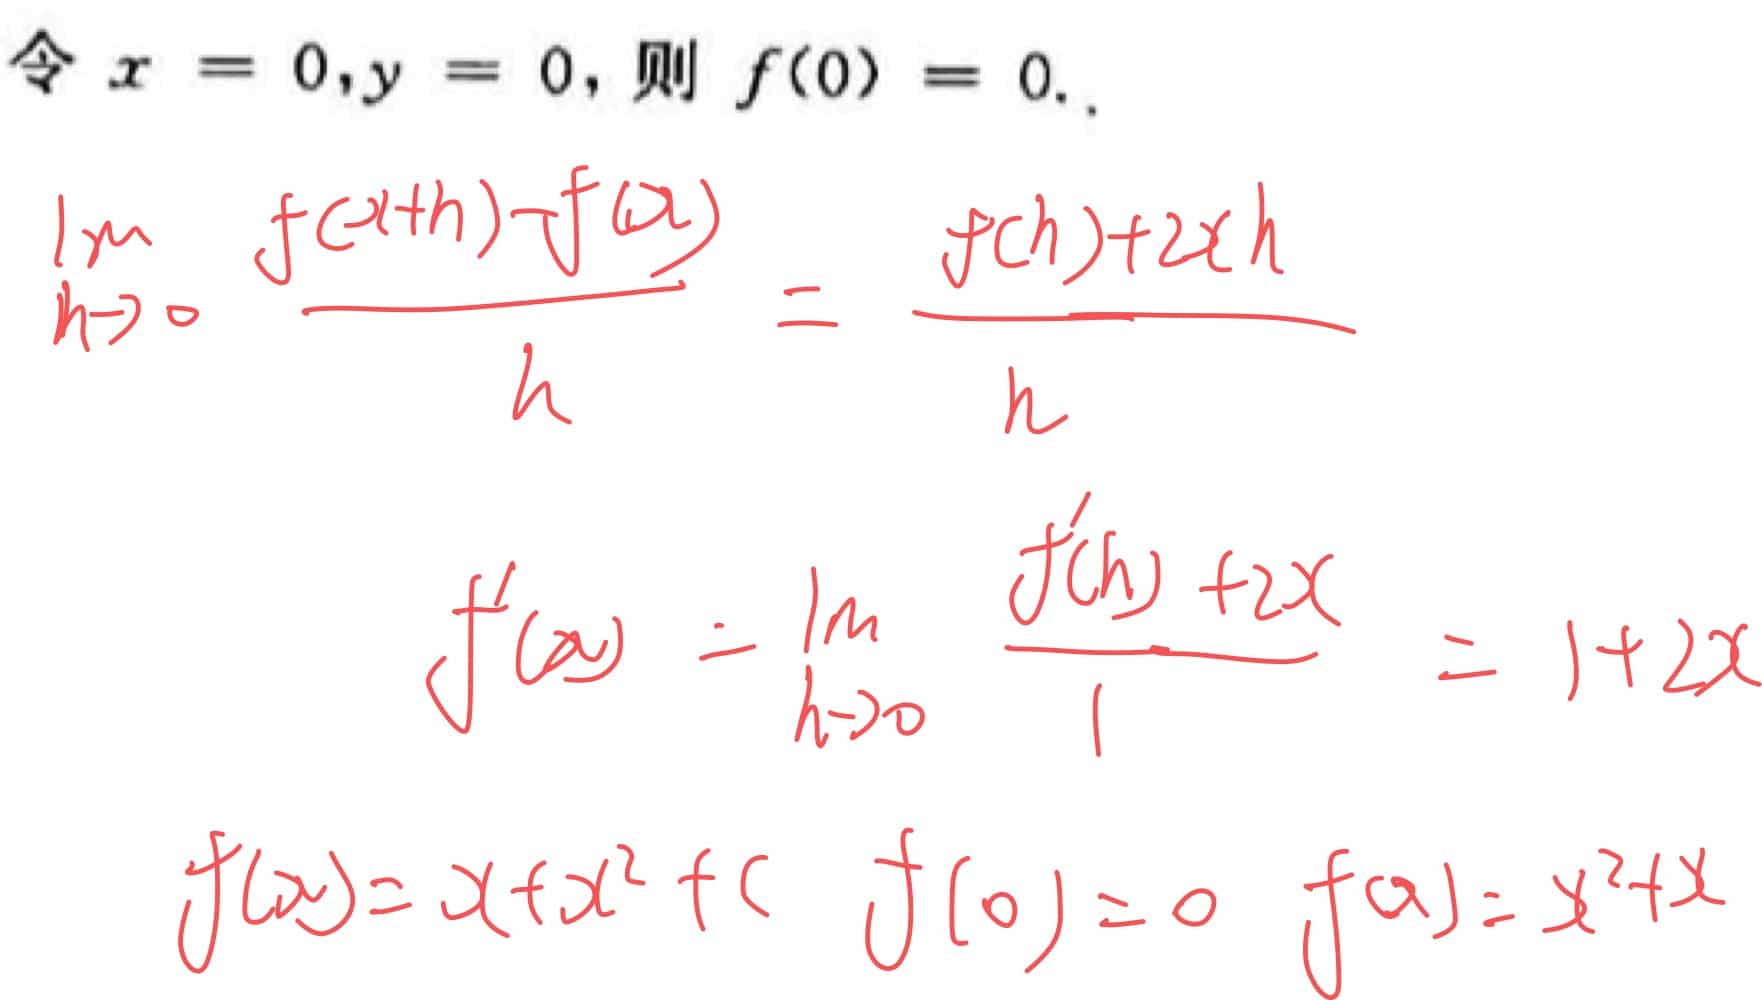 令 x = 0,y = 0, 则 f(0) = 0..
lim h→0 f(x+h)-f(x) / h = f(h)+2xh / h
f'(x) = lim h→0 f'(h)+2x / 1 = 1+2x
f(x)=x+x²+C f(0)=0 f(x)=x²+x